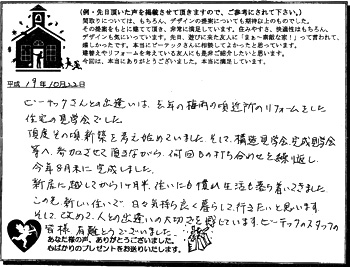 (例・先日頂いた声を掲載させて頂きますので、ご参考にされて下さい。)
間取りについては、もちろん、デザインの提案についても期待以上のものでした。
その提案をもとに建てて頂き、非常に満足しています。住みやすさ、快適性はもちろん、
デザインも気にいっています。先日、遊びに来た友人に「まぁ〜素敵な家!」って言われて、
嬉しかったです。本当にビーテックさんに相談してよかったと思っています。
建替えやリフォームを考えている友人にも是非ご紹介したいと思います。
今回は、本当にありがとうございました。本当に大満足しています。
平成 19年10月22日
ビーテックさんとの出逢いは、去年の梅雨の頃近所のリフォームをした
住宅の見学会でした。
丁度その頃新築を考え始めていました。そして、構造見学会、完成見学会
等へ、参加させて頂きながら、何回もの打ち合わせを繰返し、
今年8月末に完成しました。
新居に越してから1ヶ月半、住いにも慣れ生活も落ち着いてきました。
この先、新しい住いで、日々気持ち良く暮らして行きたいと思います。
そして、改めて、人との出逢いの大切さを感じています。ビーテックのスタッフの
皆様、有難とうございました。
あなた様の声、ありがとうございました。
心ばかりのプレゼントをお送りいたします。